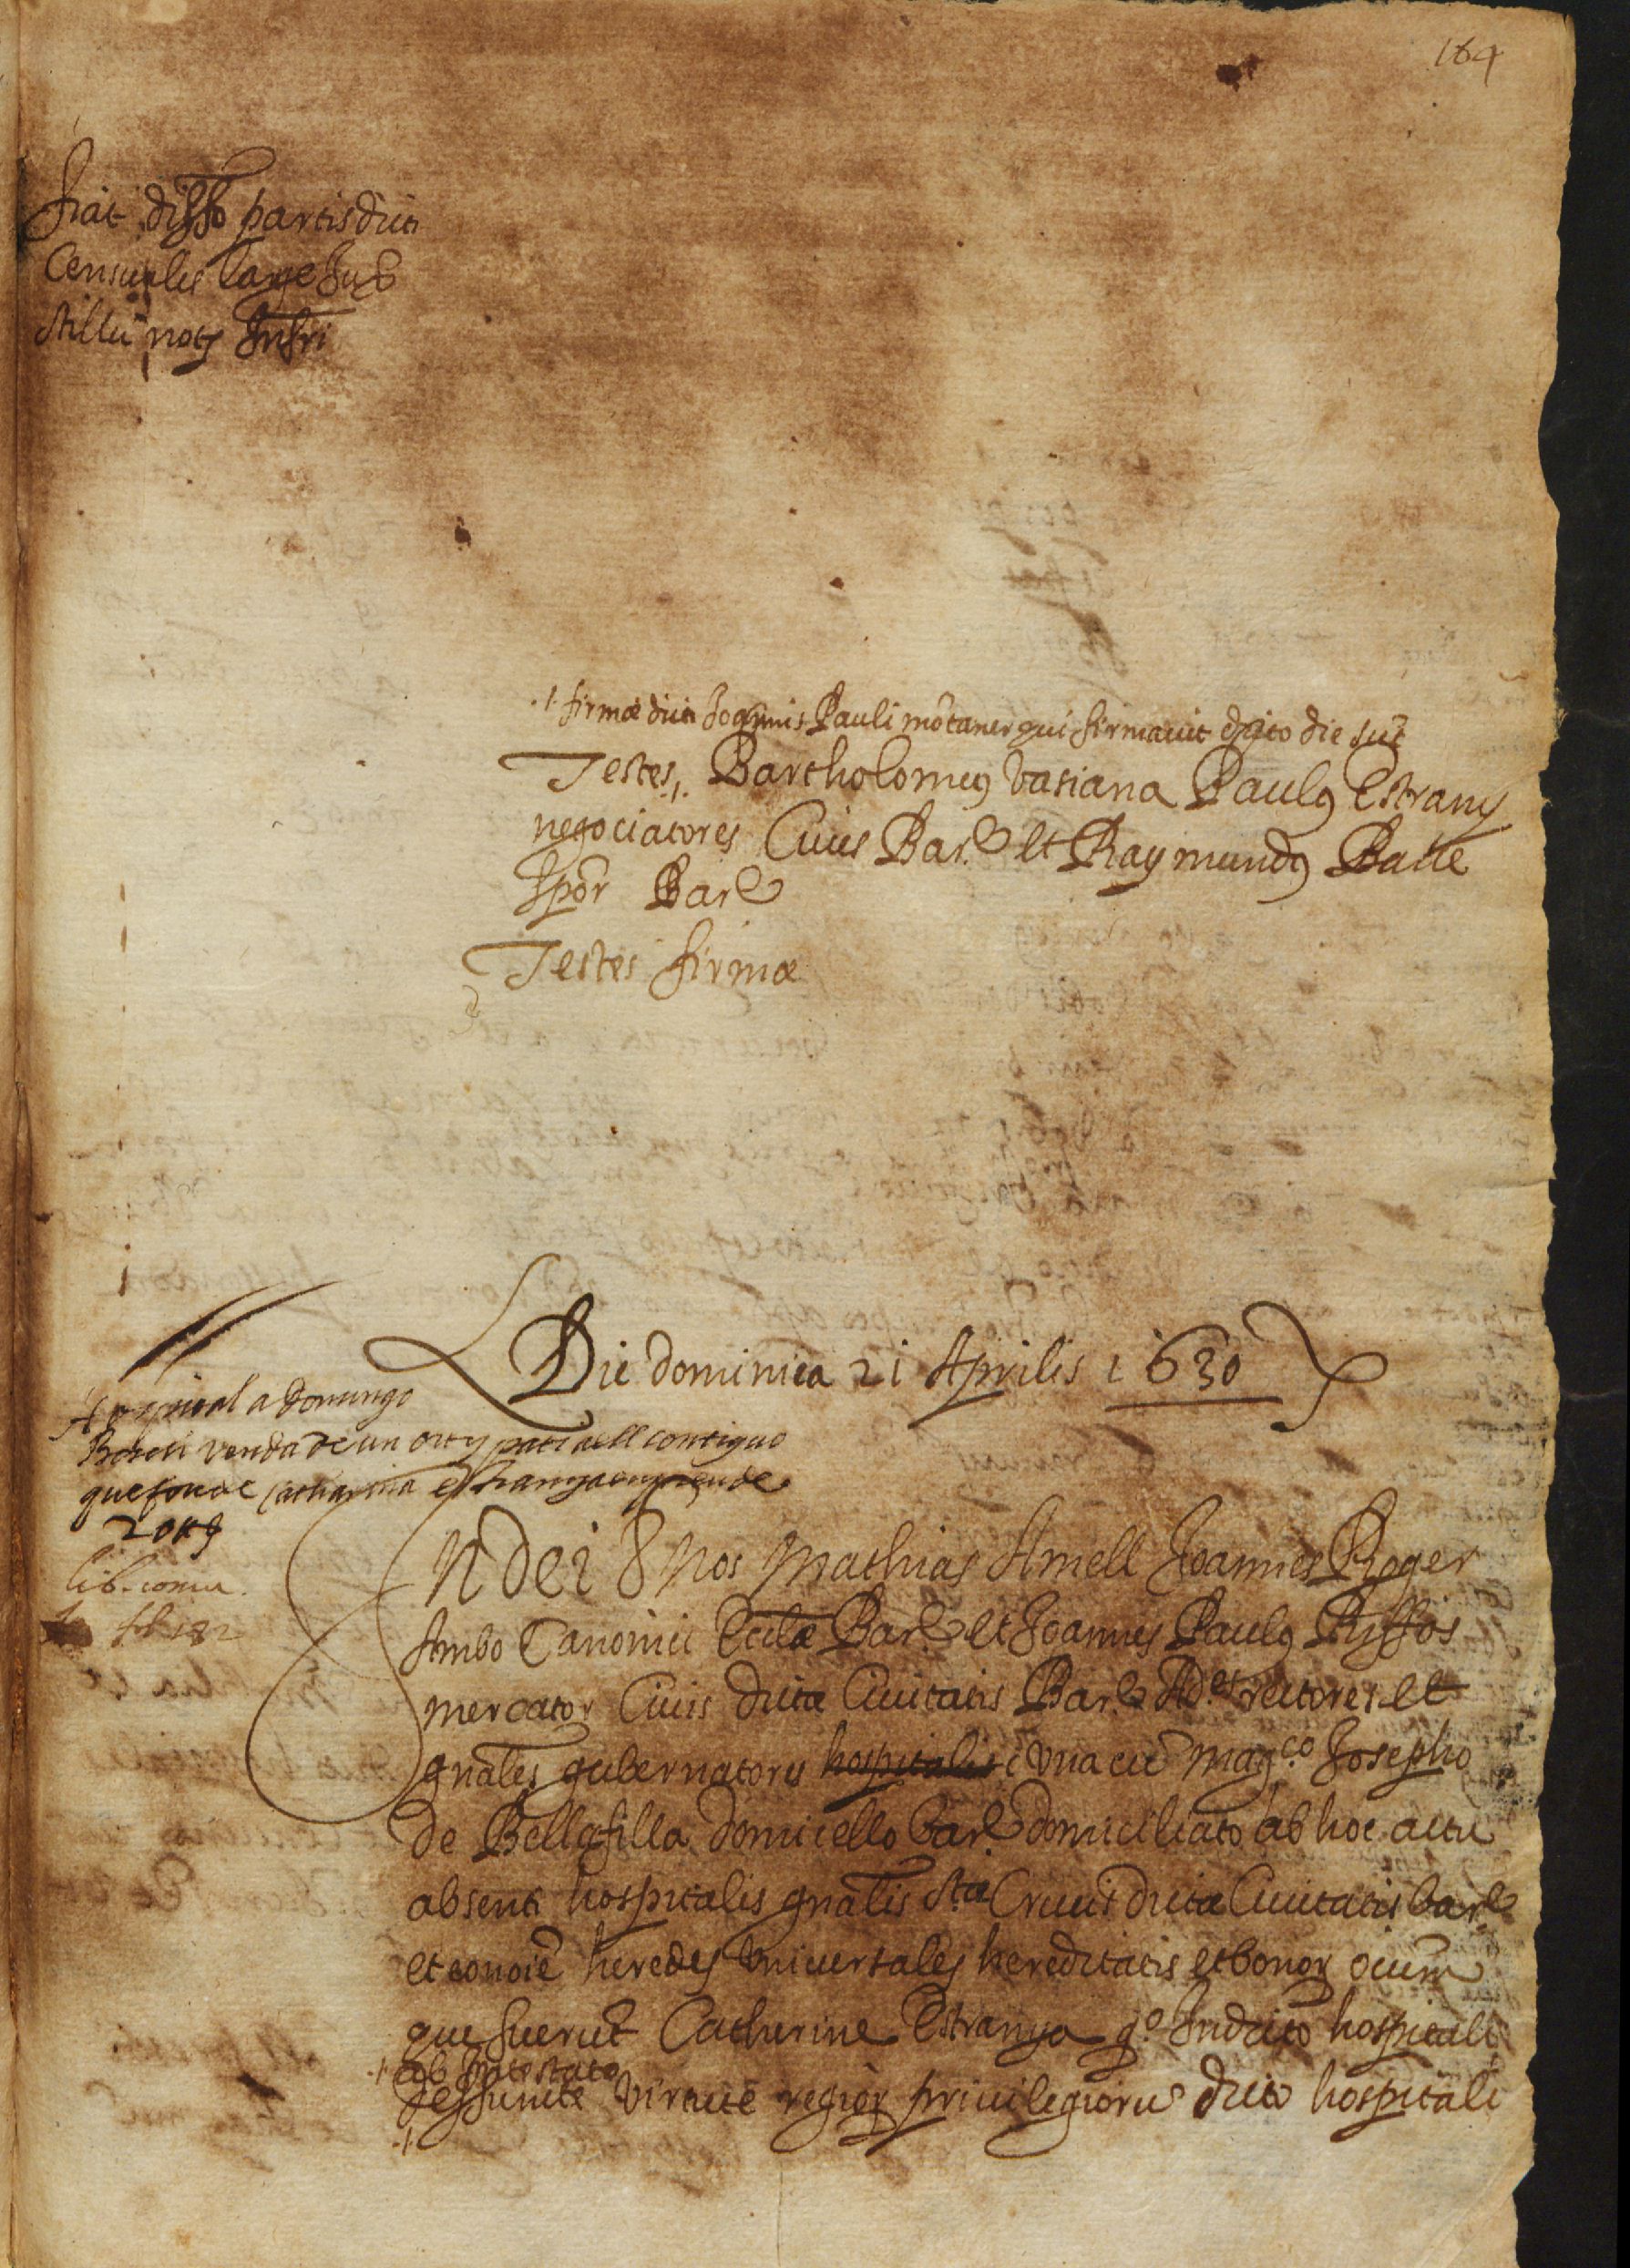 164
fiat diffo partis dicti
Censualis large sub
stillu noty Infri
firmæ dicti Joannis Pauli mõtaner qui firmavit dicto die sũt
Testes Bartholomeus Vasiana Paulus Estrany
negociatores Cives Bar. et Raymundus Batle
Spor Bar
Testes firmæ
Die dominica 21 Aprilis 1630
Hospital a Domingo
venda de un ort y pati aell contiguo
que fou de Catharina Estranya
lib. coma
fol 182
N Dei Nos Mathias Amell Joannes Roger
Ambo Canonici Ecclæ Bar. et Joannes Paulus Riffos
mercator Civis dictæ Civitatis Bar. Ad. rectores et
gnales gubernatores hospitalis una cũ Magco Josepho
de Bellafilla domicello Bar. domiciliato ab hoc actu
absenti hospitalis gnalis Stæ Crucis dictæ Civitatis Bar
et eo noiẽ heredes universales hereditatis et bonor oium
que fuerũt Catherine Estranya qo In dicto hospitali
ab intestato
deffunctæ virtute regior privilegioru dicto hospitali